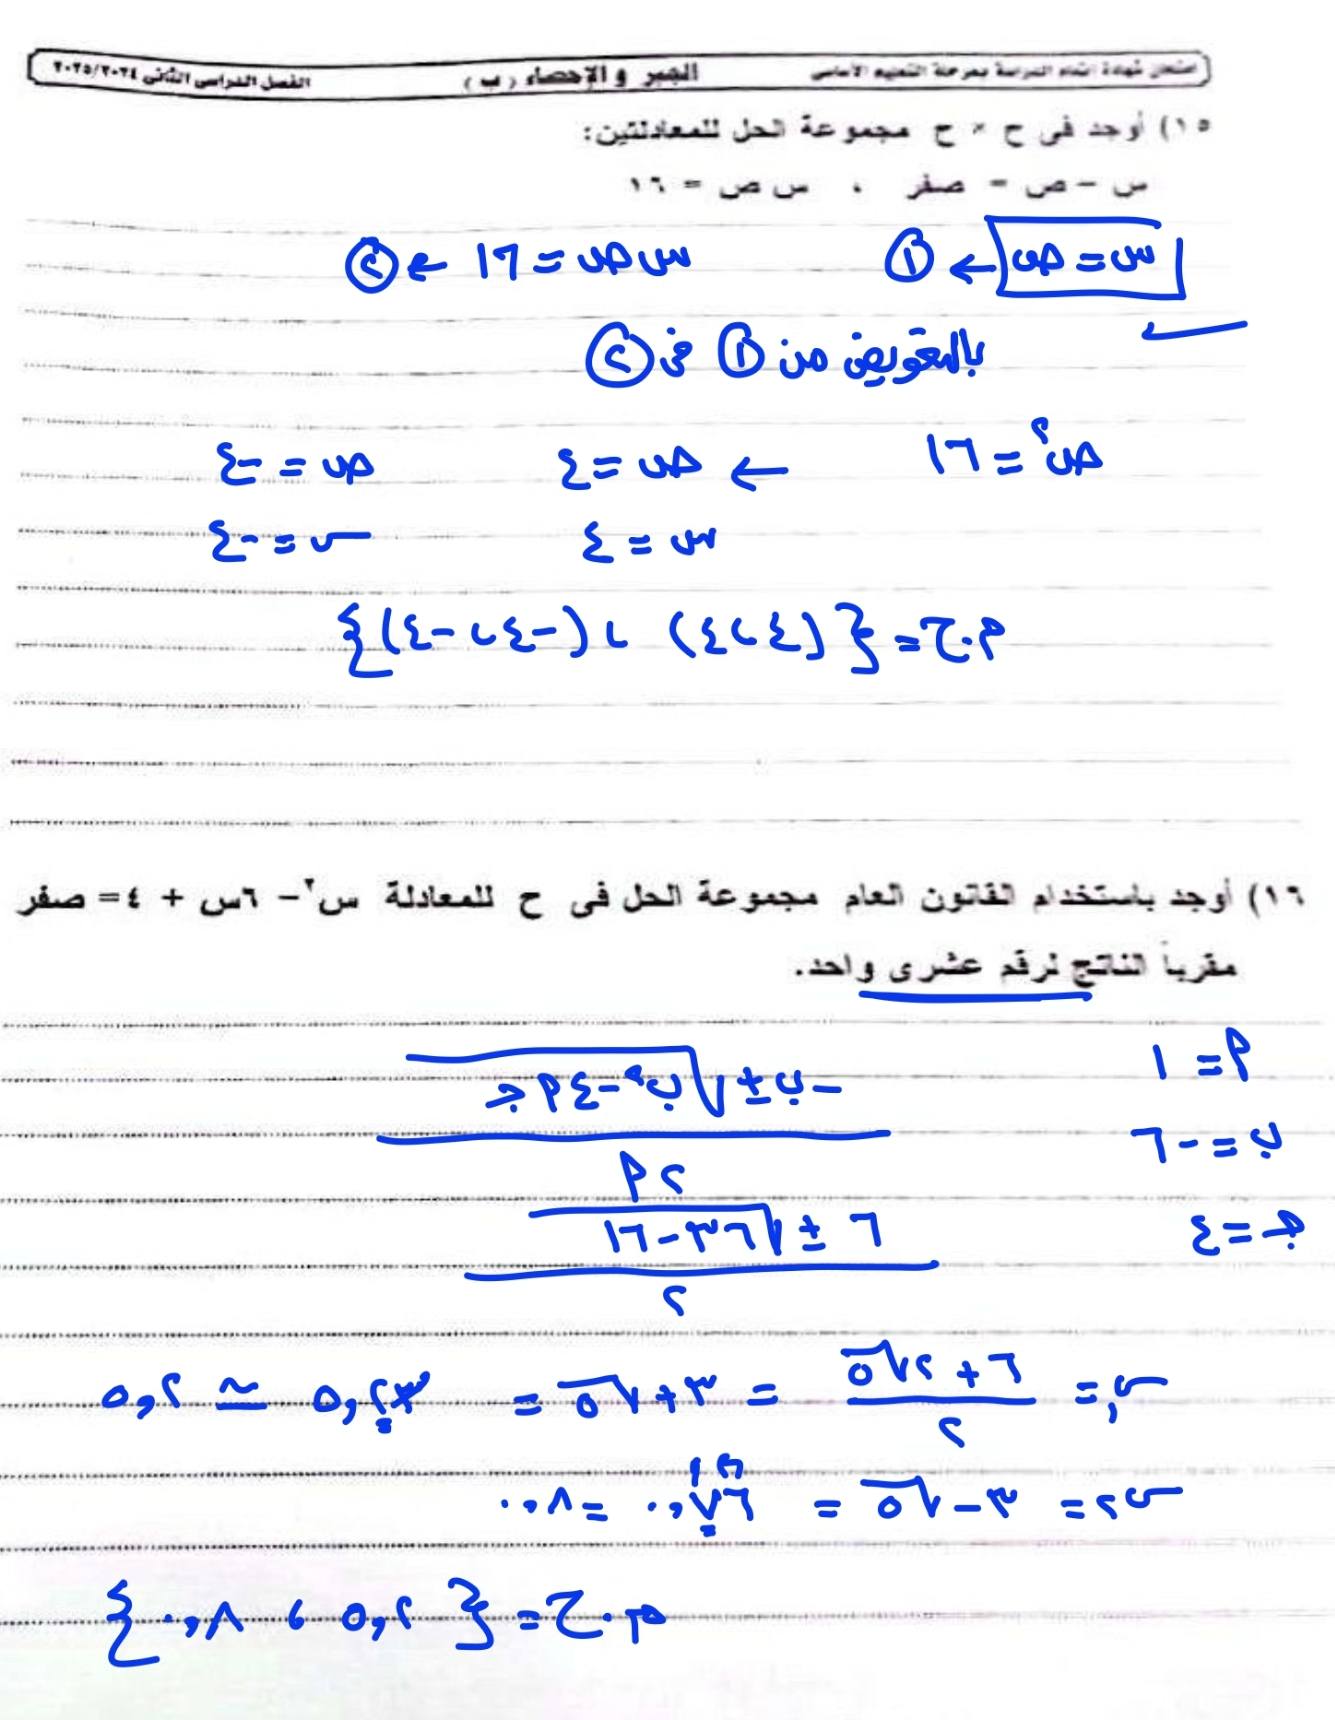 امتحان شهادة إتمام الدراسة بمرحلة التعليم الأساسى الجبر والإحصاء ( ب ) الفصل الدراسى الثانى ٢٠٢٥/٢٠٢٤
١٥) أوجد فى ح × ح مجموعة الحل للمعادلتين:
س – ص = صفر ، س ص = ١٦
س = ص ← ① س ص = ١٦ ← ②
بالتعويض من ① فى ②
ص² = ١٦ ← ص = ٤ ص = -٤
س = ٤ س = -٤
م.ح = { (٤ ، ٤) ، (-٤ ، -٤) }
١٦) أوجد باستخدام القانون العام مجموعة الحل فى ح للمعادلة س² – ٦س + ٤ = صفر
مقرباً الناتج لرقم عشرى واحد.
أ = ١
-ب ± √(ب² - ٤أج)
ب = -٦
٢أ
ج = ٤
٦ ± √(٣٦ - ١٦)
٢
س₁ = (٦ + ٢√٥) / ٢ = ٣ + √٥ = ٥,٢٣ ≃ ٥,٢
س₂ = ٣ - √٥ = ٠,٧٦ = ٠,٨
م.ح = { ٥,٢ ، ٠,٨ }